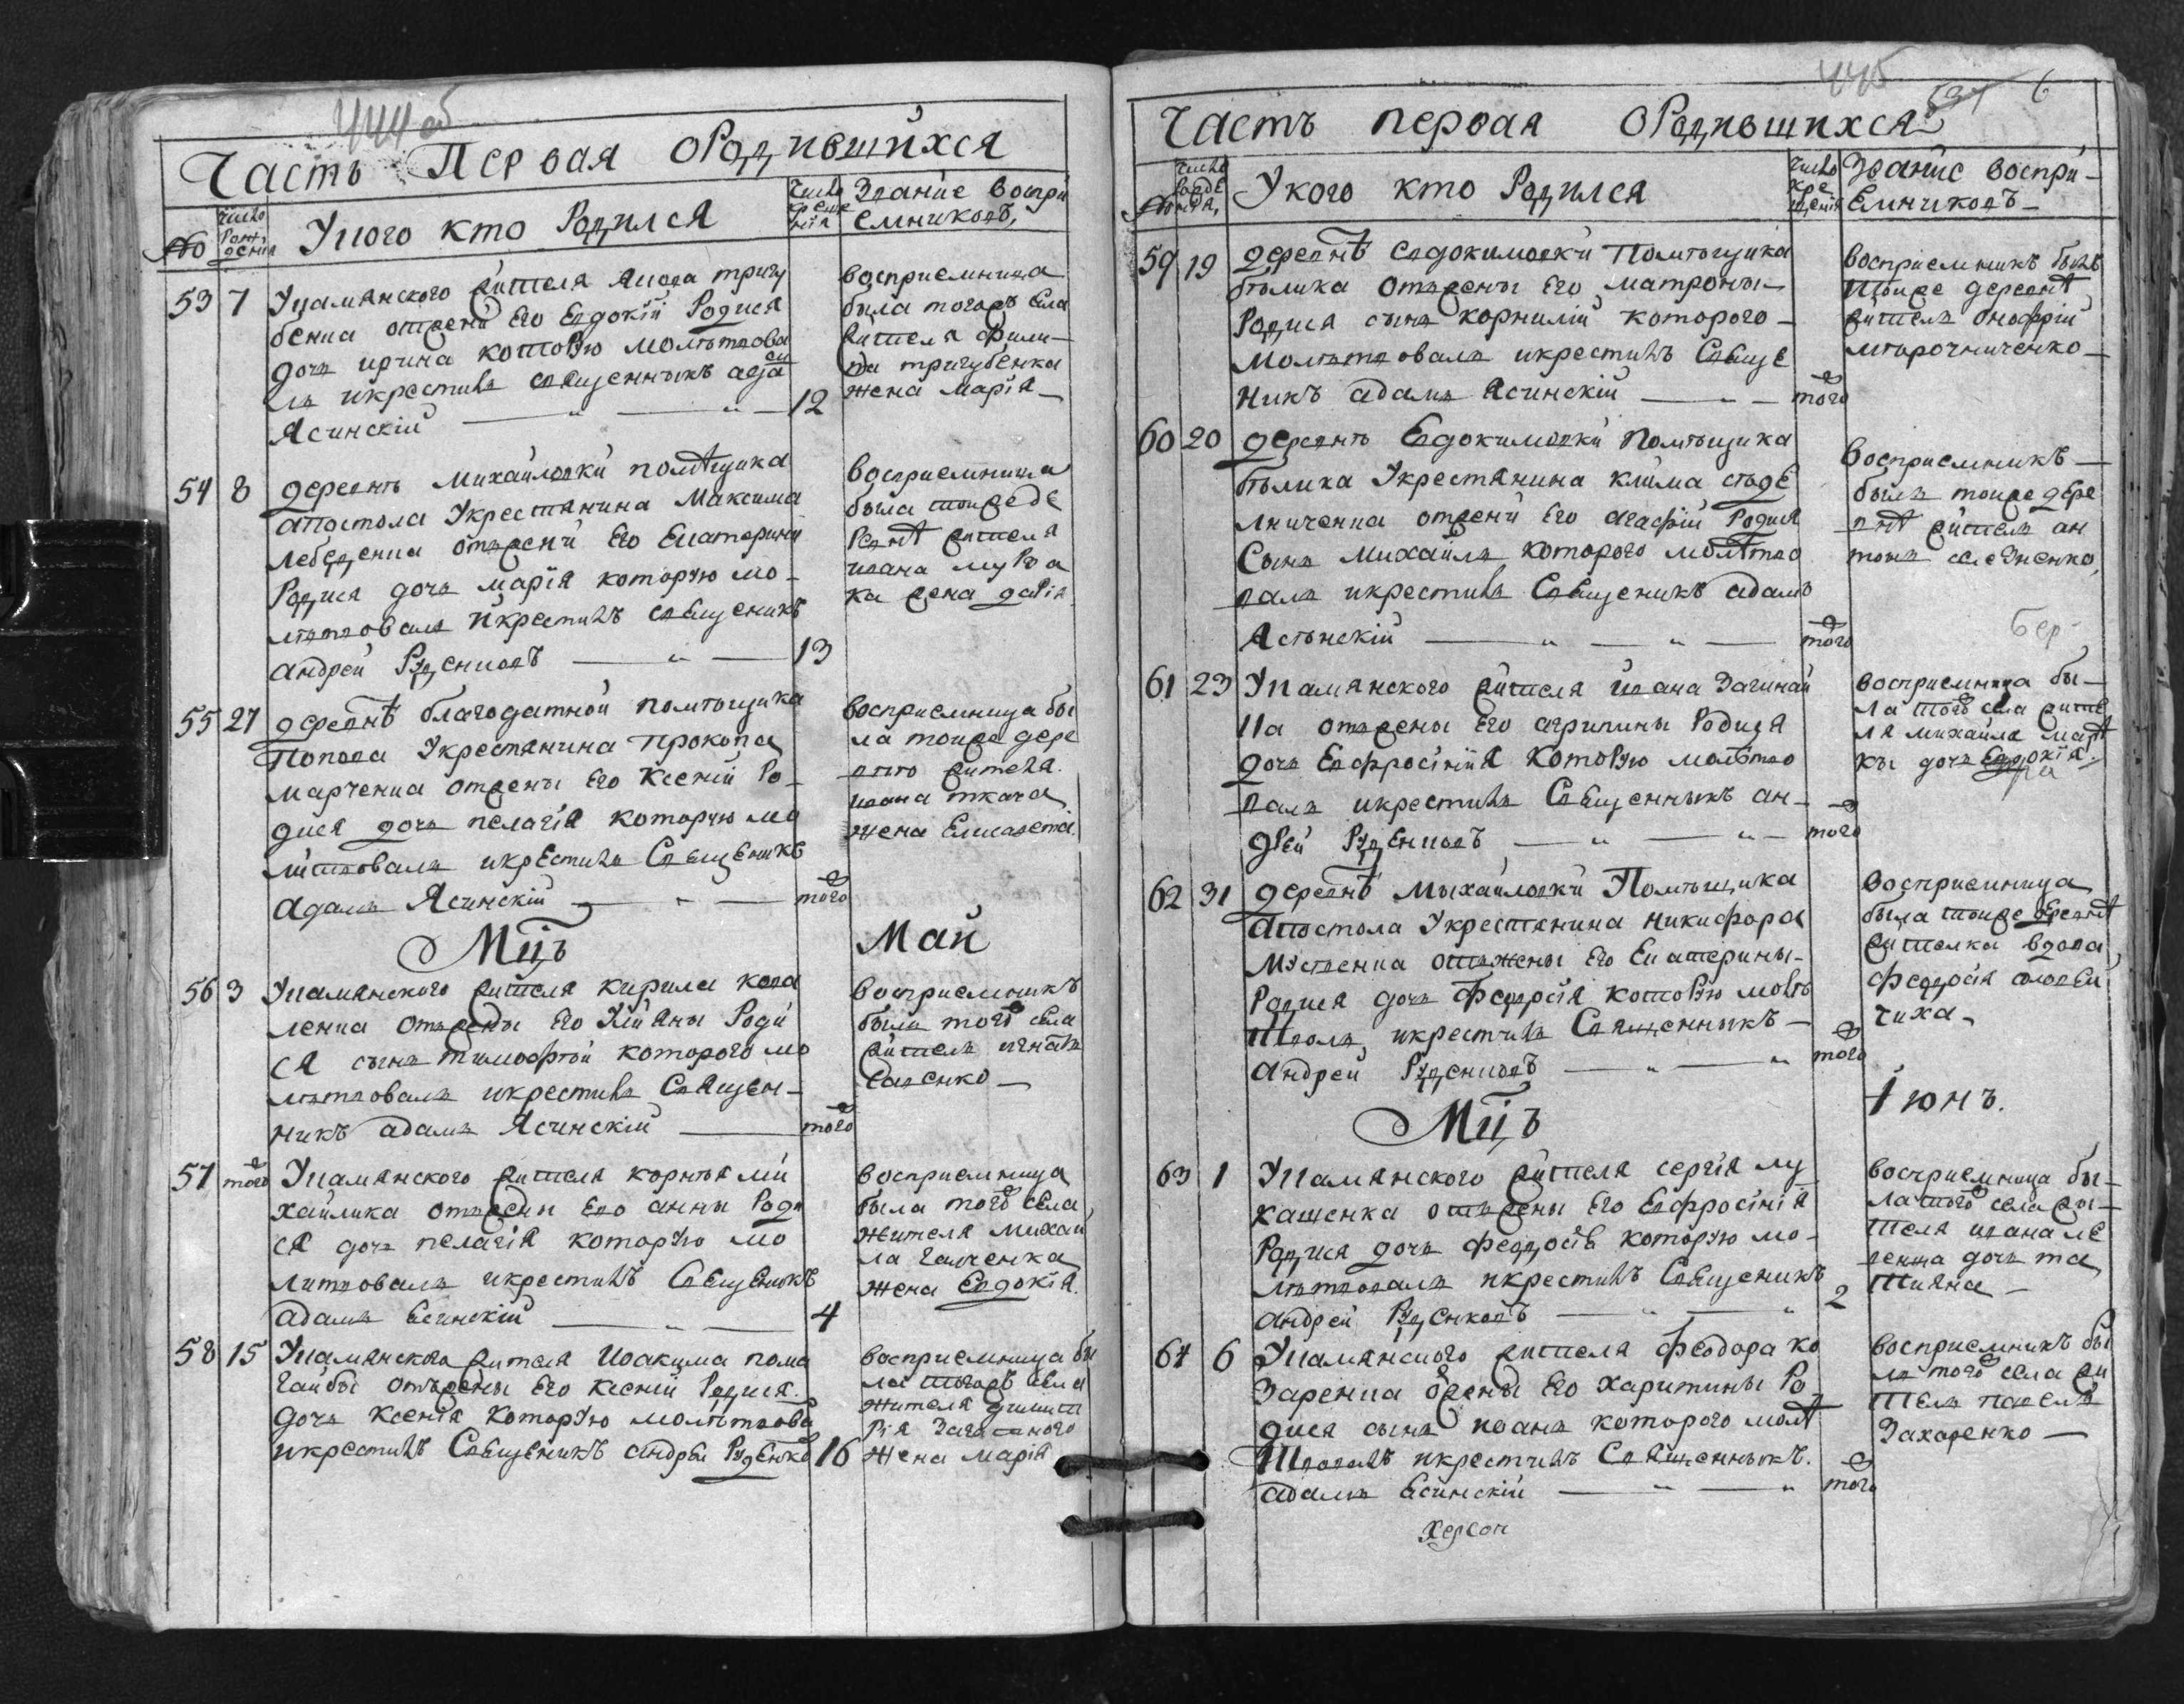 444 об
Часть Первая ОРодившихся
№ Число Рождения Укого кто Родился Число крещения Звание воспри
емниковъ,
53 7 Укамянского жителя Якова тригу
бенка отжени Его Евдокїи Родися
дочь ирина которую молитвова
ла икрестилъ священникъ ада
Ясинскїй 12
восприемница
была тогожъ села
жителя Фили
па тригубенка
жена Марїя
54 8 деревнѣ Михайловки помѣщика
апостола Укрестянина Максима
лебеденка отжени Его Екатерини
Родися дочь марїя которую мо
литвовалъ икрестилъ священикъ
андрей Руденковъ 13
восприемница
была тоиже де
ревнѣ жителя
ивана
ка жена дарїя
55 27 деревнѣ благодатной помѣщика
Попова Укрестянина Прокопа
марченка отжены Его Ксенїи Ро
дися дочь пелагїя которую мо
литвовалъ икрестилъ Священикъ
Адамъ Ясинскїй того
восприемница бы
ла тоиже дере
внѣ жителя
ивана ткача
жена Елисавета
Мцъ Май
56 3 Укамянского жителя кирила кова
ленка отжены Его Улїяны Роди
ся сынъ тимофѣй которого мо
литвовалъ икрестилъ Священ
никъ адамъ Ясинскїй того
восприемникъ
былъ того села
житель игнатъ
савенко
57 того Укамянского жителя корнѣя ми
хайлика отжены Его анны Роди
ся дочь пелагїя которую мо
литвовалъ икрестилъ Священикъ
адамъ Есинскїй 4
восприемница
была того села
жителя михай
ла
жена Евдокїя
58 15 Укамянского жителя Иоакима пома
гайбы отжены Его ксенїи Родися
дочь ксенїя которую молитвова
икрестилъ Священикъ андрей Руденко 16
восприемница бы
ла тогожъ села
жителя димит
рїя
жена марїя
445
6
Часть первая ОРодившихся
№ число рождения Укого кто Родился число крещенїя Званїе воспри
емниковъ
59 19 деревнѣ Евдокимовки Помѣщика
бѣлика отжены Его матроны
Родися сынъ корнилїй которого
молитвовалъ икрестилъ Свяще
никъ адамъ Ясинскїй того
восприемникъ былъ
тоиже деревнѣ
житель онофрїй
мирочниченко
60 20 деревнѣ Евдокимовки помѣщика
бѣлика Укрестянина клима
лниченка отжени Его агафїи Родися
Сынъ михайла которого молитво
валъ икрестилъ Священикъ адамъ
Ясѣнскїй того
восприемникъ
былъ тоиже дере
внѣ житель ан
тонъ
Бер
61 23 Укамянского жителя ивана Загинай
ка отжены Его агрипины Родися
дочь Евфросінїя Которую молитво
валъ икрестилъ Священныкъ ан
дрей Руденковъ того
восприемница бы
ла того села жите
ля михайла
ки дочь Евдокїя
62 31 деревнѣ Мыхайловки Помѣщика
Апостола Укрестянина никифора
отжены Его Екатерины
Родися дочь Феодосїя которую моли
твовалъ икрестилъ Священныкъ
андрей Руденковъ того
восприемница
была тоиже деревнѣ
жителка вдова
феодосїя
чиха
Мцъ Іюнъ.
63 1 Укамянского жителя сергїя лу
кашенка отжены Его Евфросїнїя
Родися дочь феодосїя которую мо
литвовалъ икрестилъ Священикъ
андрей Руденковъ 2
восприемница бы
ла того села жи
теля ивана ле
венка дочь та
тияна
64 6 Укамянского жителя феодора ко
заренка жены Его Харитины Ро
дися сынъ иоанъ которого моли
твовалъ икрестилъ Священныкъ.
адамъ Есинскїй того
восприемникъ бы
лъ того села жи
тель павелъ
Захаренко
Херсон